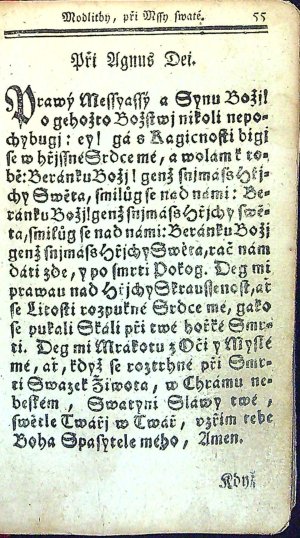 Modlitby, při Mssy swaté. 55
Při Agnus Dei.
Prawý Messyassy a Synu Božj!
o gehožto Božstwj nikoli nepo-
chybugj: ey! gá s Kagicnosti bigi
se w hřjssné Srdce mé, a wolám k to-
bě: Beránku Božj! genž snjmáss Hřj-
chy Swěta, smilůg se nad námi: Be-
ránku Božj! genž snjmáss Hřjchy swě-
ta, smilůg se nad námi: Beránku Božj
genž snjmáss Hřjchy Swěta, rač nám
dáti zde, y po smrti Pokog. Deg mi
prawau nad Hřjchy Skraussenost, ať
se Litosti rozpukne Srdce mé, gako
se pukali Skáli při twé hořké Smr-
ti. Deg mi Mrákotu z Očj y Mysle
mé, ať, když se roztrhne při Smr-
ti Swazek Žiwota, w Chrámu ne-
beském, Swatyni Sláwy twé,
swětle Twářj w Twář, vzřjm tebe
Boha Spasytele mého, Amen.
Když